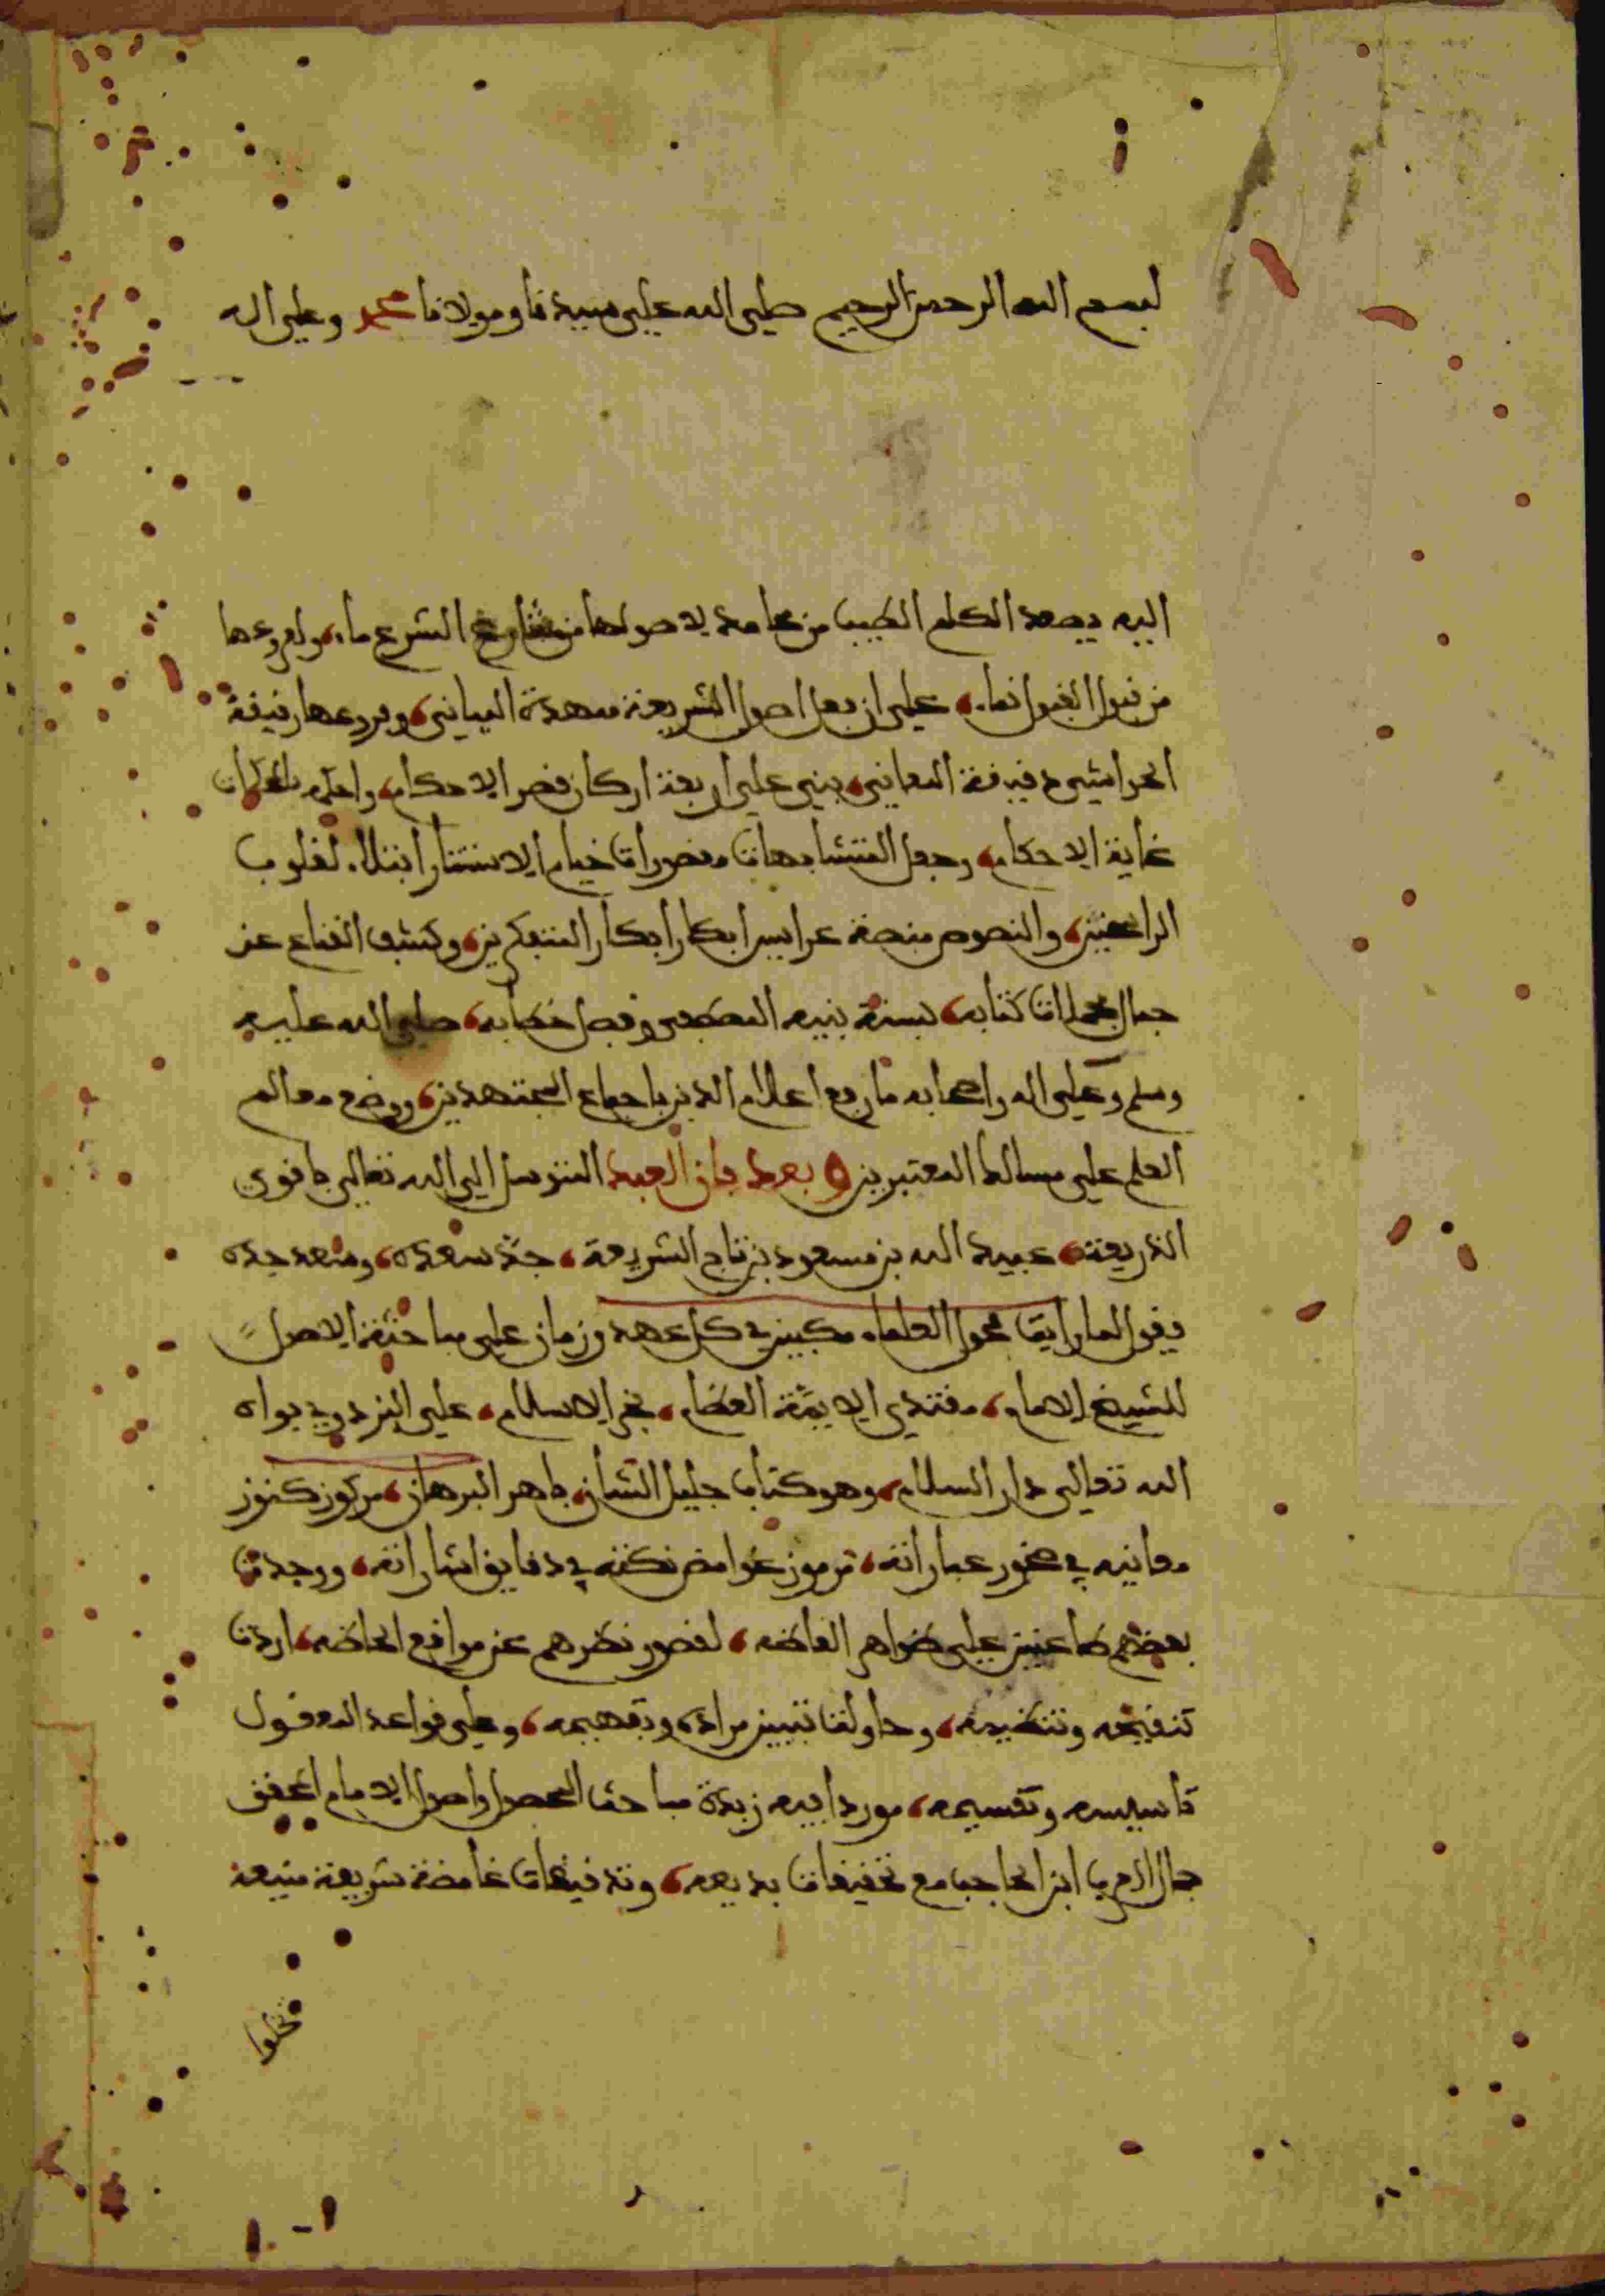 بسم الله الرحمن الرحيم صلى الله على سيدنا ومولانا محمد وعلى اله
اليه يصعد الكلم الطيب من محامد لاصولها من مشارع الشرع ماء، ولفروعها
من قبول القبول نماء، على ان جعل اصول الشريعة ممهدة المباني، وفروعها رقيقة
الحواشي دقيقة المعاني، بنى على اربعة اركان قصر الاحكام، واحكمه بالمحكمات
غاية الاحكام، وجعل المتشابهات مقصورات خيام الاستتار ابتلاء لقلوب
الراسخين، والنصوص منصة عرايس ابكار افكار المتفكرين، وكشف القناع عن
جمال مجملات كتابه، بسنة نبيه المصطفى وفصل خطابه، صلى الله عليه
وسلم وعلى اله واصحابه ما رفع اعلام الدين باجماع المجتهدين، ووضع معالم
العلم على مسالك المعتبرين وبعد فان العبد المتوسل الى الله تعالى باقوى
الذريعة، عبيد الله بن مسعود بن تاج الشريعة، جد سعده، وسعد جده
يقول لما رايت فحول العلماء مكبين في كل عهد وزمان على مباحثة الاصول
للشيخ الامام، مقتدى الايمة العظام، فخر الاسلام، علي البزدوي بواه
الله تعالى دار السلام، وهو كتاب جليل الشان، باهر البرهان، مركوز كنوز
معانيه في صخور عباراته، مرموز غوامض نكته في دقايق اشاراته، ووجدت
بعضهم طاعنين على ظواهر الفاظه، لقصور نظرهم عن مواقع الحاظه، اردت
تنقيحه وتنظيمه، وحاولت تبيين مراده وتفهيمه، وعلى قواعد المعقول
تاسيسه وتقسيمه، موردا فيه زبدة مباحث المحصول واصول الامام المحقق
جمال العرب ابن الحاجب مع تحقيقات بديعه، وتدقيقات غامضة شريفة منيعه
تخلوا